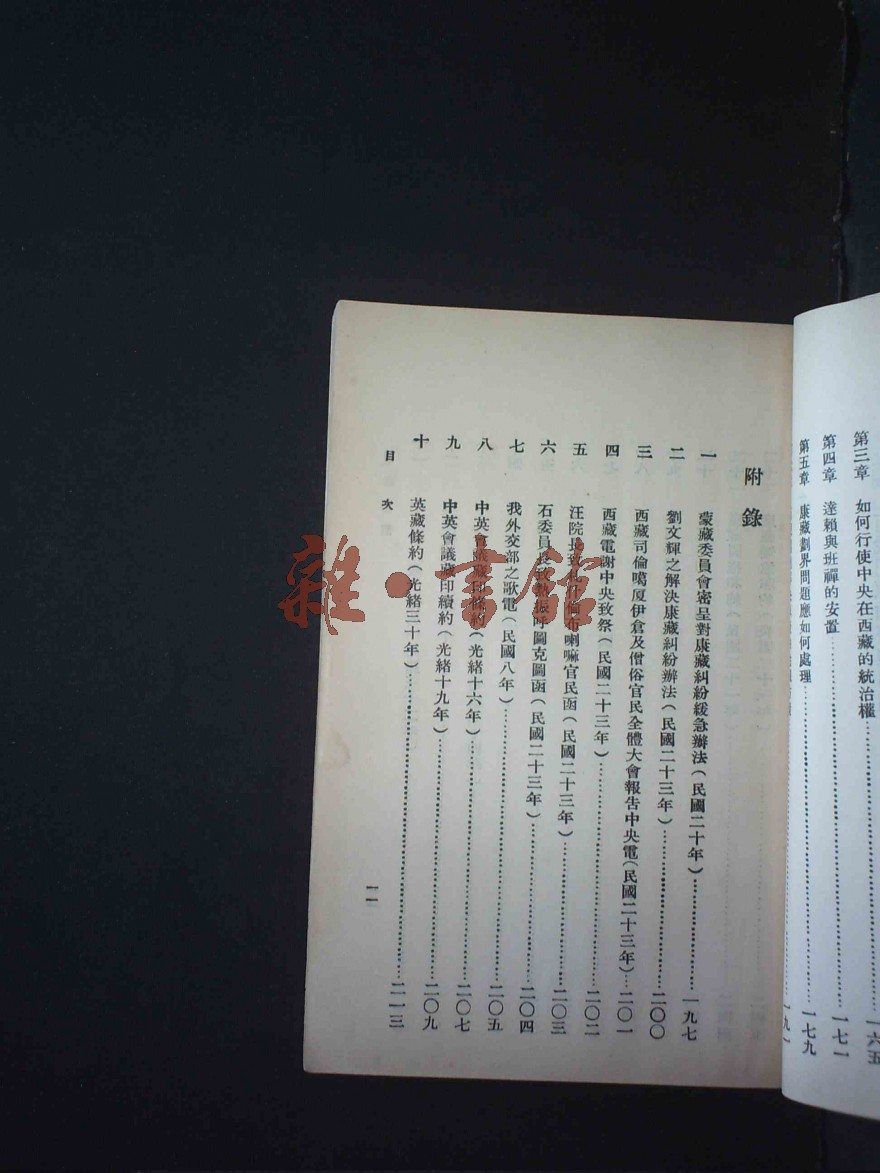 第三章 如何行使中央在西藏的統治權 一六五
第四章 達賴與班禪的安置 一七一
第五章 康藏劃界問題應如何處理 一七九
附錄
一 蒙藏委員會密呈對康藏糾紛緩急辦法(民國二十年) 一九七
二 劉文輝之解決康藏糾紛辦法(民國二十三年) 二〇〇
三 西藏司倫噶厦伊倉及僧俗官民全體大會報告中央電(民國二十三年) 二〇一
四 西藏電謝中央致祭(民國二十三年) 二〇二
五 汪院長致 喇嘛官民函(民國二十三年) 二〇三
六 石委員長致熱振呼圖克圖函(民國二十三年) 二〇四
七 我外交部之歌電(民國八年) 二〇五
八 中英會議藏印條約(光緒十六年) 二〇七
九 中英會議藏印續約(光緒十九年) 二〇九
十 英藏條約(光緒三十年) 二一三
目次
二
雜·書館